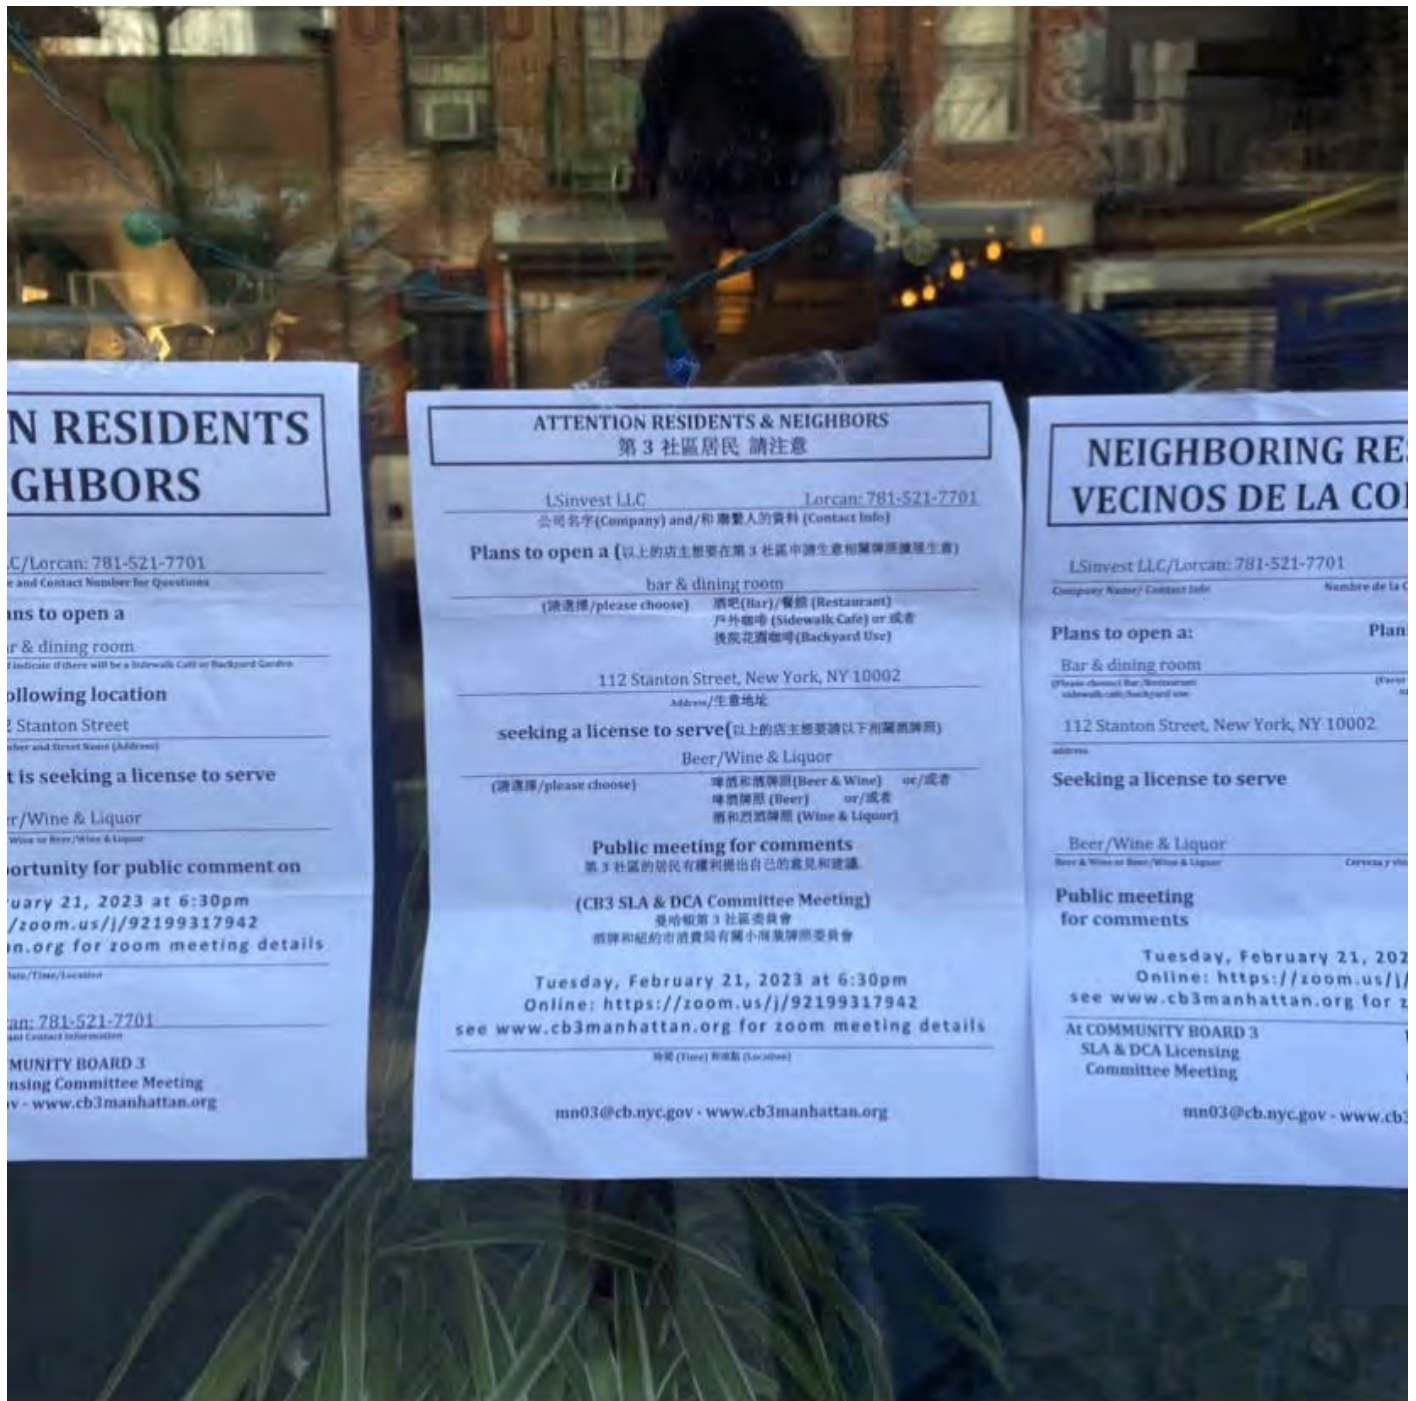 N RESIDENTS
GHBORS
C/Lorcan: 781-521-7701
e and Contact Number for Questions
ns to open a
r & dining room
d indicate if there will be a Sidewalk Café or Backyard Garden
ollowing location
2 Stanton Street
ber and Street Name (Address)
t is seeking a license to serve
r/Wine & Liquor
Wine or Beer/Wine & Liquor
ortunity for public comment on
uary 21, 2023 at 6:30pm
/zoom.us/j/92199317942
an.org for zoom meeting details
Date/Time/Location
can: 781-521-7701
ant Contact Information
MUNITY BOARD 3
nsing Committee Meeting
ov - www.cb3manhattan.org
ATTENTION RESIDENTS & NEIGHBORS
第 3 社區居民 請注意
LSinvest LLC Lorcan: 781-521-7701
公司名字(Company) and/和 聯繫人的資料 (Contact Info)
Plans to open a (以上的店主想要在第 3 社區申請生意相關牌照擴展生意)
bar & dining room
(請選擇/please choose) 酒吧(Bar)/餐館 (Restaurant)
戶外咖啡 (Sidewalk Café) or 或者
後院花園咖啡(Backyard Use)
112 Stanton Street, New York, NY 10002
Address/生意地址
seeking a license to serve(以上的店主想要請以下相關酒牌照)
Beer/Wine & Liquor
(請選擇/please choose) 啤酒和酒牌照(Beer & Wine) or/或者
啤酒牌照 (Beer) or/或者
酒和烈酒牌照 (Wine & Liquor)
Public meeting for comments
第 3 社區的居民有權利提出自己的意見和建議
(CB3 SLA & DCA Committee Meeting)
曼哈頓第 3 社區委員會
酒牌和紐約市消費局有關小商業牌照委員會
Tuesday, February 21, 2023 at 6:30pm
Online: https://zoom.us/j/92199317942
see www.cb3manhattan.org for zoom meeting details
時間 (Time) 和地點 (Location)
mn03@cb.nyc.gov - www.cb3manhattan.org
NEIGHBORING RES
VECINOS DE LA CO
LSinvest LLC/Lorcan: 781-521-7701
Company Name/ Contact Info Nombre de la C
Plans to open a: Plan
Bar & dining room
(Please choose) Bar/Restaurant (Favor
sidewalk cafe/backyard use
112 Stanton Street, New York, NY 10002
address
Seeking a license to serve
Beer/Wine & Liquor
Beer & Wine or Beer/Wine & Liquor Cerveza y vin
Public meeting
for comments
Tuesday, February 21, 202
Online: https://zoom.us/j/
see www.cb3manhattan.org for z
At COMMUNITY BOARD 3
SLA & DCA Licensing
Committee Meeting
mn03@cb.nyc.gov - www.cb3